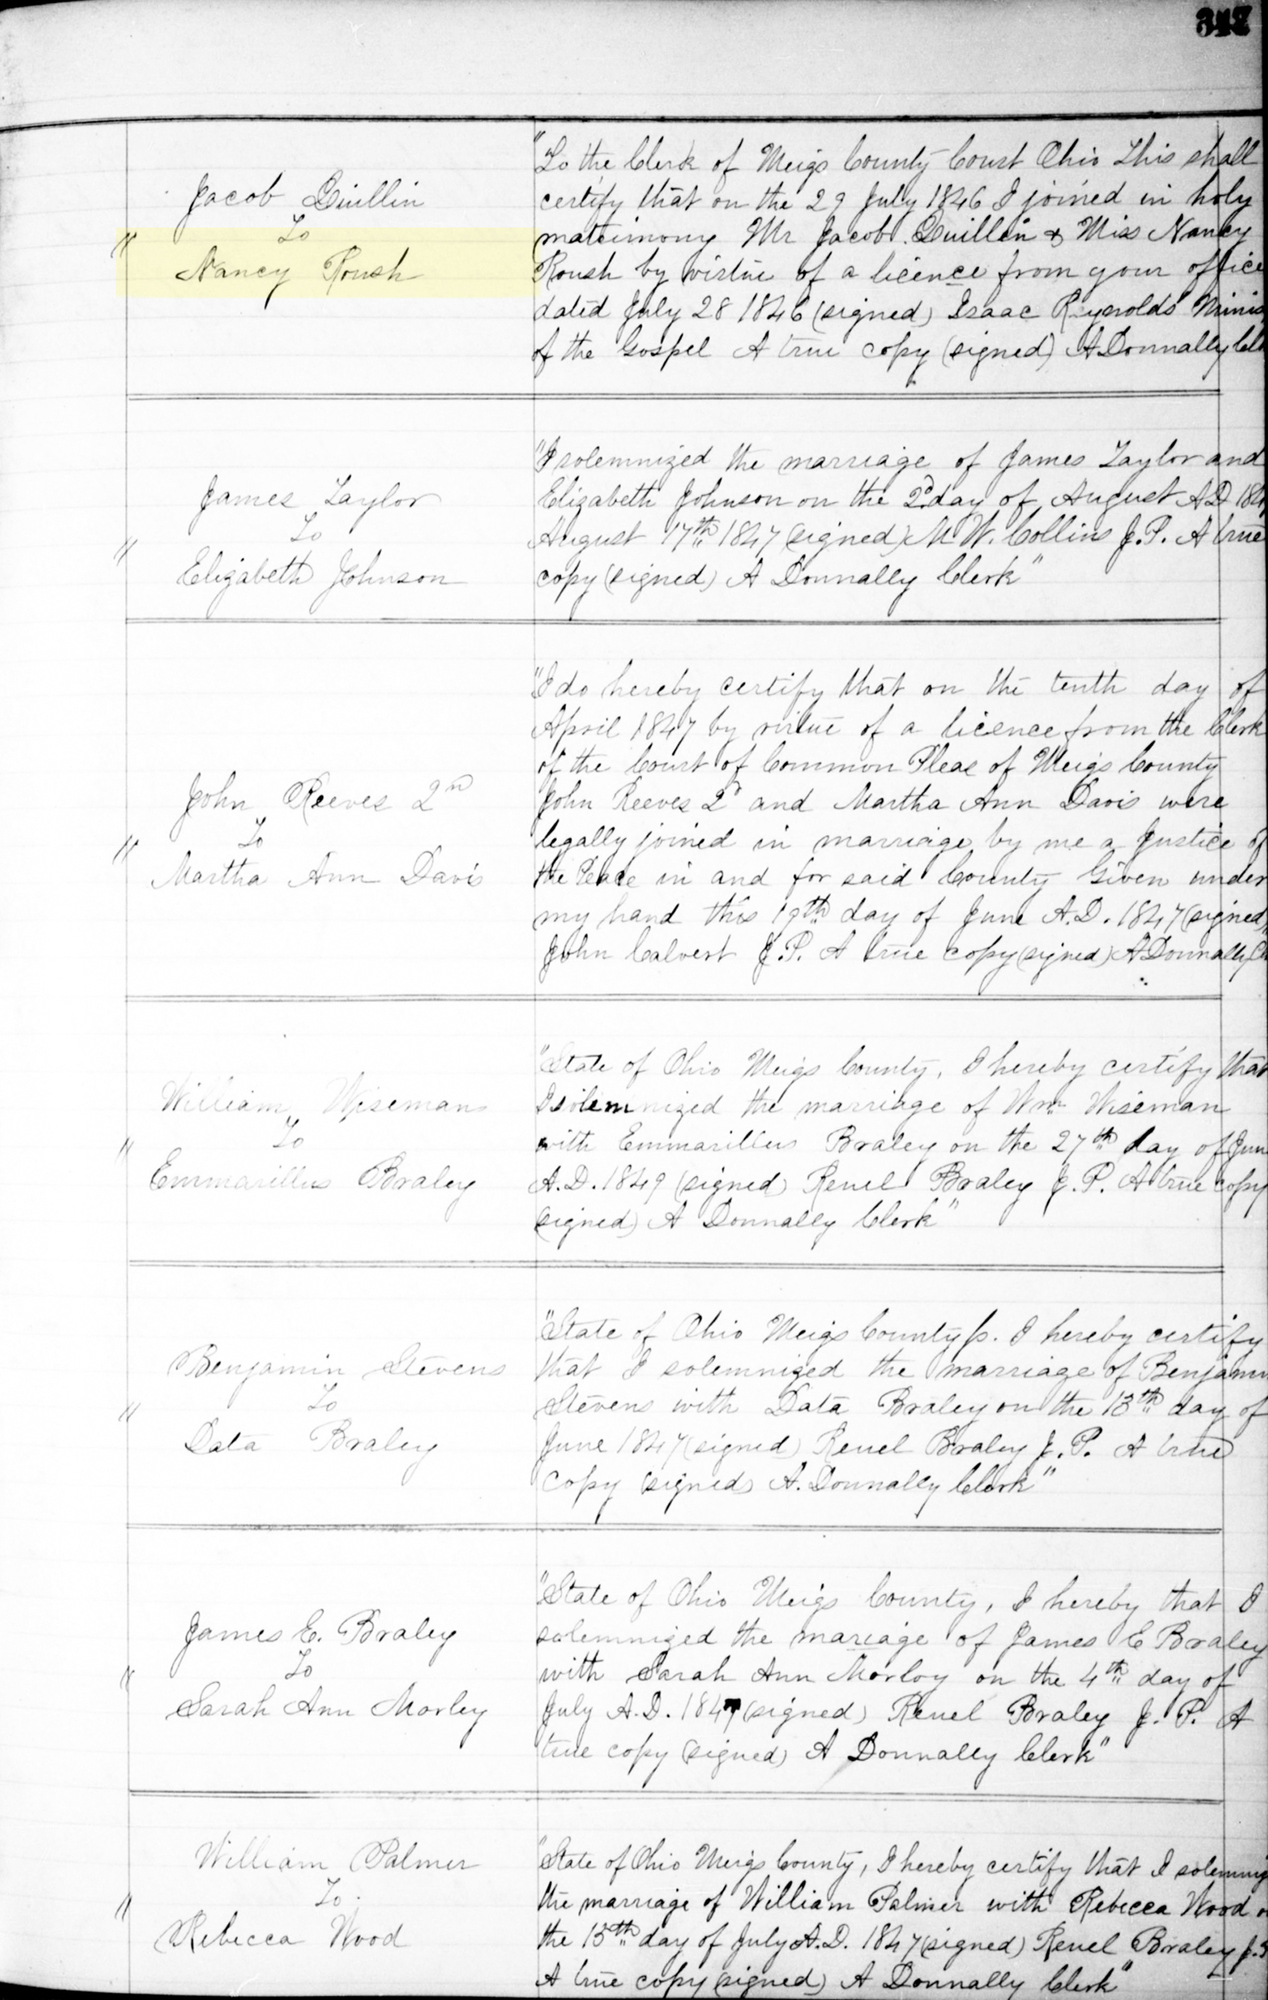 347
Jacob Quillin
To
" Nancy Roush
"To the Clerk of Meigs County Court Ohio This shall
certify that on the 29 July 1846 I joined in holy
matrimony Mr Jacob Quillin & Miss Nancy
Roush by virtue of a licence from your office
dated July 28 1846 (signed) Isaac Reynolds Minis
of the Gospel A true copy (signed) A Donnally Clk
James Taylor
To
" Elizabeth Johnson
"I solemnized the marriage of James Taylor and
Elizabeth Johnson on the 2d day of August AD 184
August 17th 1847 (signed) M W. Collins J.P. A true
copy (signed) A Donnally Clerk"
John Reeves 2nd
To
" Martha Ann Davis
"I do hereby certify that on the tenth day of
April 1847 by virtue of a licence from the Clerk
of the Court of Common Pleas of Meigs County
John Reeves 2d and Martha Ann Davis were
legally joined in marriage by me a Justice of
the Peace in and for said County Given under
my hand this 19th day of June A.D. 1847 (signed)
John Calvert J.P. A true copy (signed) A Donnally Clk
William Wiseman
To
" Emmarillus Braley
"State of Ohio Meigs County, I hereby certify that
I solemnized the marriage of Wm Wiseman
with Emmarillus Braley on the 27th day of Jun
A.D. 1849 (signed) Reuel Braley J.P. A true copy
(signed) A Donnally Clerk"
Benjamin Stevens
To
" Data Braley
"State of Ohio Meigs County ss. I hereby certify
that I solemnized the marriage of Benjamin
Stevens with Data Braley on the 13th day of
June 1847 (signed) Reuel Braley J.P. A true
copy (signed) A. Donnally Clerk"
James E. Braley
To
" Sarah Ann Morley
"State of Ohio Meigs County, I hereby that I
solemnized the mariage of James E Braley
with Sarah Ann Morley on the 4th day of
July A.D. 1847 (signed) Reuel Braley J.P. A
true copy (signed) A Donnally Clerk"
William Palmer
To
" Rebecca Wood
"State of Ohio Meigs County, I hereby certify that I solemniz
the marriage of William Palmer with Rebecca Wood o
the 13th day of July A.D. 1847 (signed) Reuel Braley J.P
A true copy (signed) A Donnally Clerk"